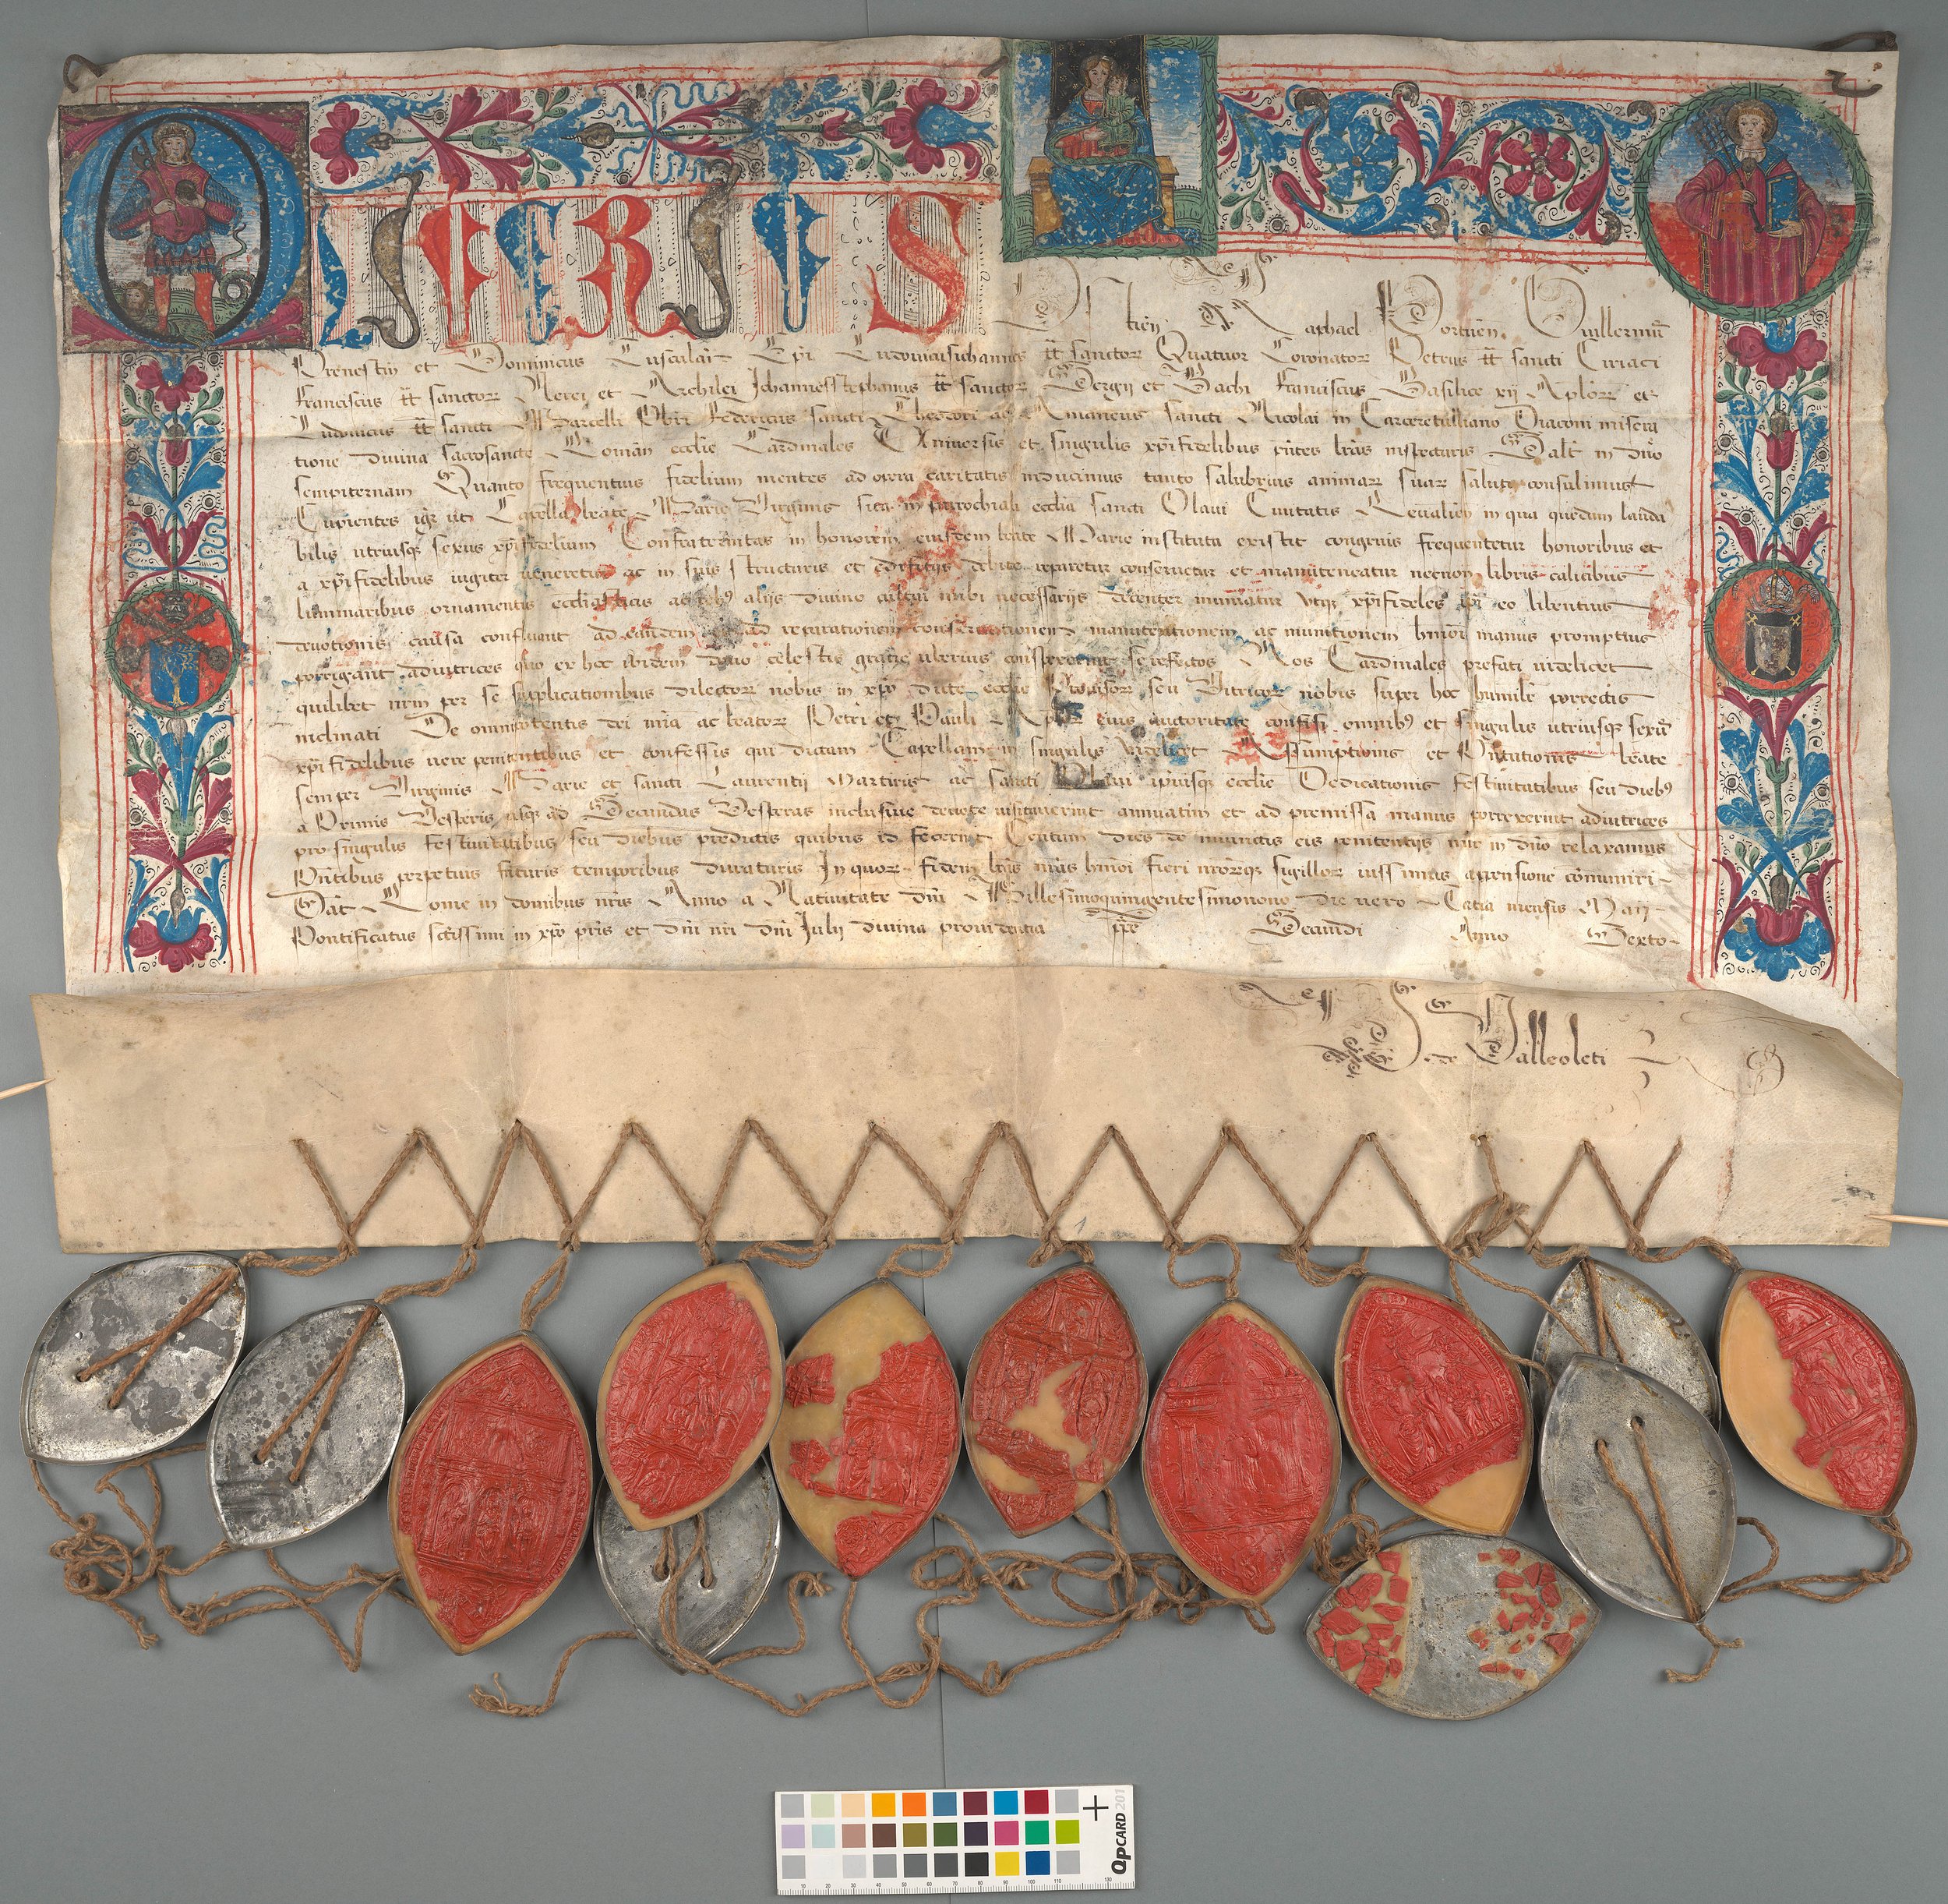 OLIVERIUS
Raphael Portuen Guillermus
Prenestin et Dominicus Tusculan Epi Ludouicusiohannes tt sanctor Quatuor Coronator Petrus tt sancti Ciriaci
Franciscus tt sanctor Nerei et Archilei Johannesstephanus tt sanctor Sergij et Bachi Franciscus Basilice xij Aplor et
Ludouicus tt sancti Marcelli Pbri Federicus sancti Theodori ac Amaneus sancti Nicolai in Carceretulliano Diaconi misera
tione diuina sacrosancte Roman ecclie Cardinales Uniuersis et singulis xpifidelibus pntes lras inspecturis Salt in dno
sempiternam Quanto frequentius fidelium mentes ad opera caritatis inducimus tanto salubrius animar suar saluti consulimus
Cupientes igr ut Capella beate Marie Virginis sita in parrochiali ecclia sancti Olaui Ciuitatis Reualien in qua quedam lauda
bilis utriusq sexus xpifidelium Confraternitas in honorem eiusdem beate Marie instituta existit congruis frequentetur honoribus et
a xpifidelibus iugiter ueneretur ac in suis structuris et edificijs debite reparetur conseruetur et manuteneatur necnon libris calicibus
luminaribus ornamentis ecclasticis ac reb9 alijs diuino cultui inibi necessarijs decenter muniatur utq xpifideles ipi eo libentius
deuotionis causa confluant ad eandem ad reparationem conseruationem manutentionem ac munitionem hmoi manus promptius
porrigant adiutrices quo ex hoc ibidem dono celestis gratie uberius conspexerint se refectos Nos Cardinales prefati uidelicet
quilibet nrm per se supplicationibus dilector nobis in xpo dicte ecclie Prouisor seu Vitricor nobis super hoc humilr porrectis
inclinati De omnipotentis dei mia ac beator Petri et Pauli Aplor eius auctoritate confisi omnib9 et singulis utriusq sexus
xpifidelibus uere penitentibus et confessis qui dictam Capellam in singulis uidelicet Assumptionis et Pntationis beate
semper Virginis Marie et sancti Laurentii Martiris ac sancti Olaui ipiusq ecclie Dedicationis festiuitatibus seu dieb9
a Primis Vesperis usq ad Secundas Vesperas inclusiue deuote uisitauerint annuatim et ad premissa manus porrexerint adiutrices
pro singulis festiuitatibus seu diebus predictis quibus id fecerint Centum dies de iniunctis eis penitentijs mir in dno relaxamus
Pntibus perpetuis futuris temporibus duraturis In quor fidem lras nras hmoi fieri nrorq sigillor iussimus appensione comuniri
Dat Rome in domibus nris Anno a Natiuitate dni Millesimoquingentesimonono die uero Tertia mensis Maii
Pontificatus sctissimi in xpo pris et dni nri dni Julij diuina prouidentia ppe Secundi Anno Sexto
de Valleoleti
1
QpCARD 201
10 20 30 40 50 60 70 80 90 100 110 130